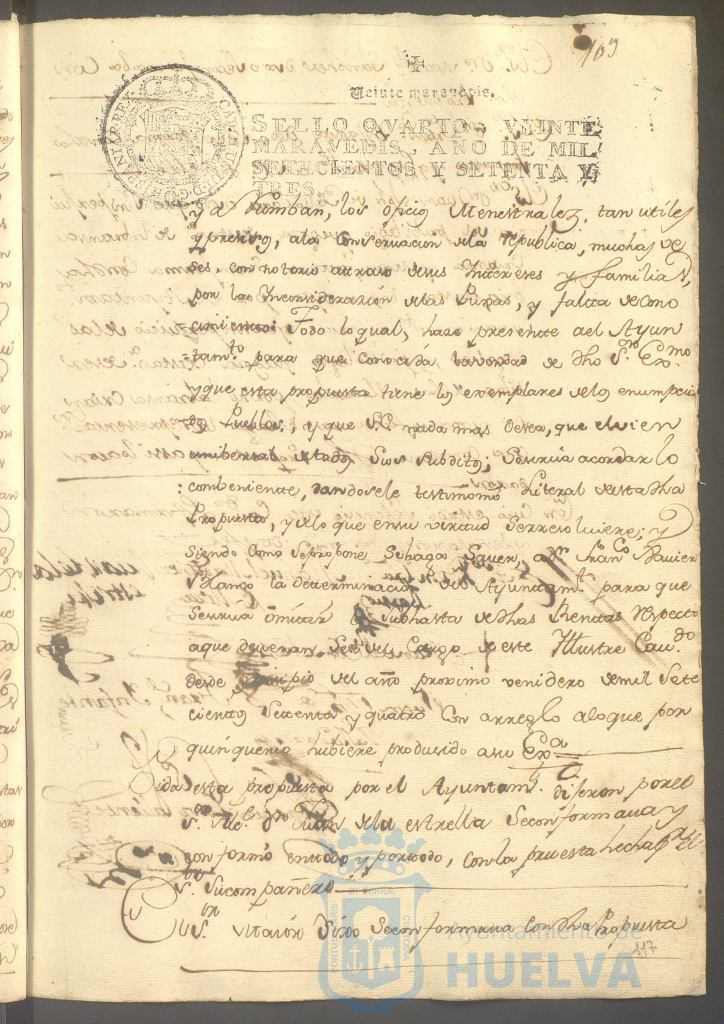 109
Veinte maravedis.
SELLO QVARTO, VEINTE
MARAVEDIS, AÑO DE MIL
SETECIENTOS Y SETENTA Y
TRES.
los oficios Menestrales, tan utiles
y presisos, ala Conservacion dela republica, muchas ve
ses, con notorio atraso desus Intereses y familias,
por las Inconsiderazion delas Puxas, y falta de Cono
cimiento: Todo lo qual, haze presente ael Ayun
tamto para que Conocida laverdad de dho Sr. Exmo
y que esta propuesta tiene los exemplares delos enumpcia
dos Pueblos, y que S.E. nada mas desea, que elvien
unibersal detodos Sus Subditos; Seservia acordar lo
combeniente, dandosele testimonio Literal de esta dha
Propuesta, y delo que ensu virtud Serresolviere; y
siendo Como Sepropone Sehaga Saver, a Dn. Franco Xavier
Blanco la determinacion del Ayuntamto para que
Seservia omitir la Subhasta dedhas Rentas Respecto
aque deveran Ser del Cargo de este Illustre Cavdo
desde principio del año proximo venidero demil Sete
cientos Setenta y quatro Con arreglo alo que por
quinquenio hubiere producido a su Exa
Oida esta propuesta por el Ayuntamto dijeron por el
Sr. Alce. Dn. Juan dela estrella Seconformava y
conformó entodo y portodo, con la pruesta hecha pr. El
Sr. Sucompañero
El Sr. Sindo Seconformava Con dha Propuesta
117
Ayuntamiento de
HUELVA